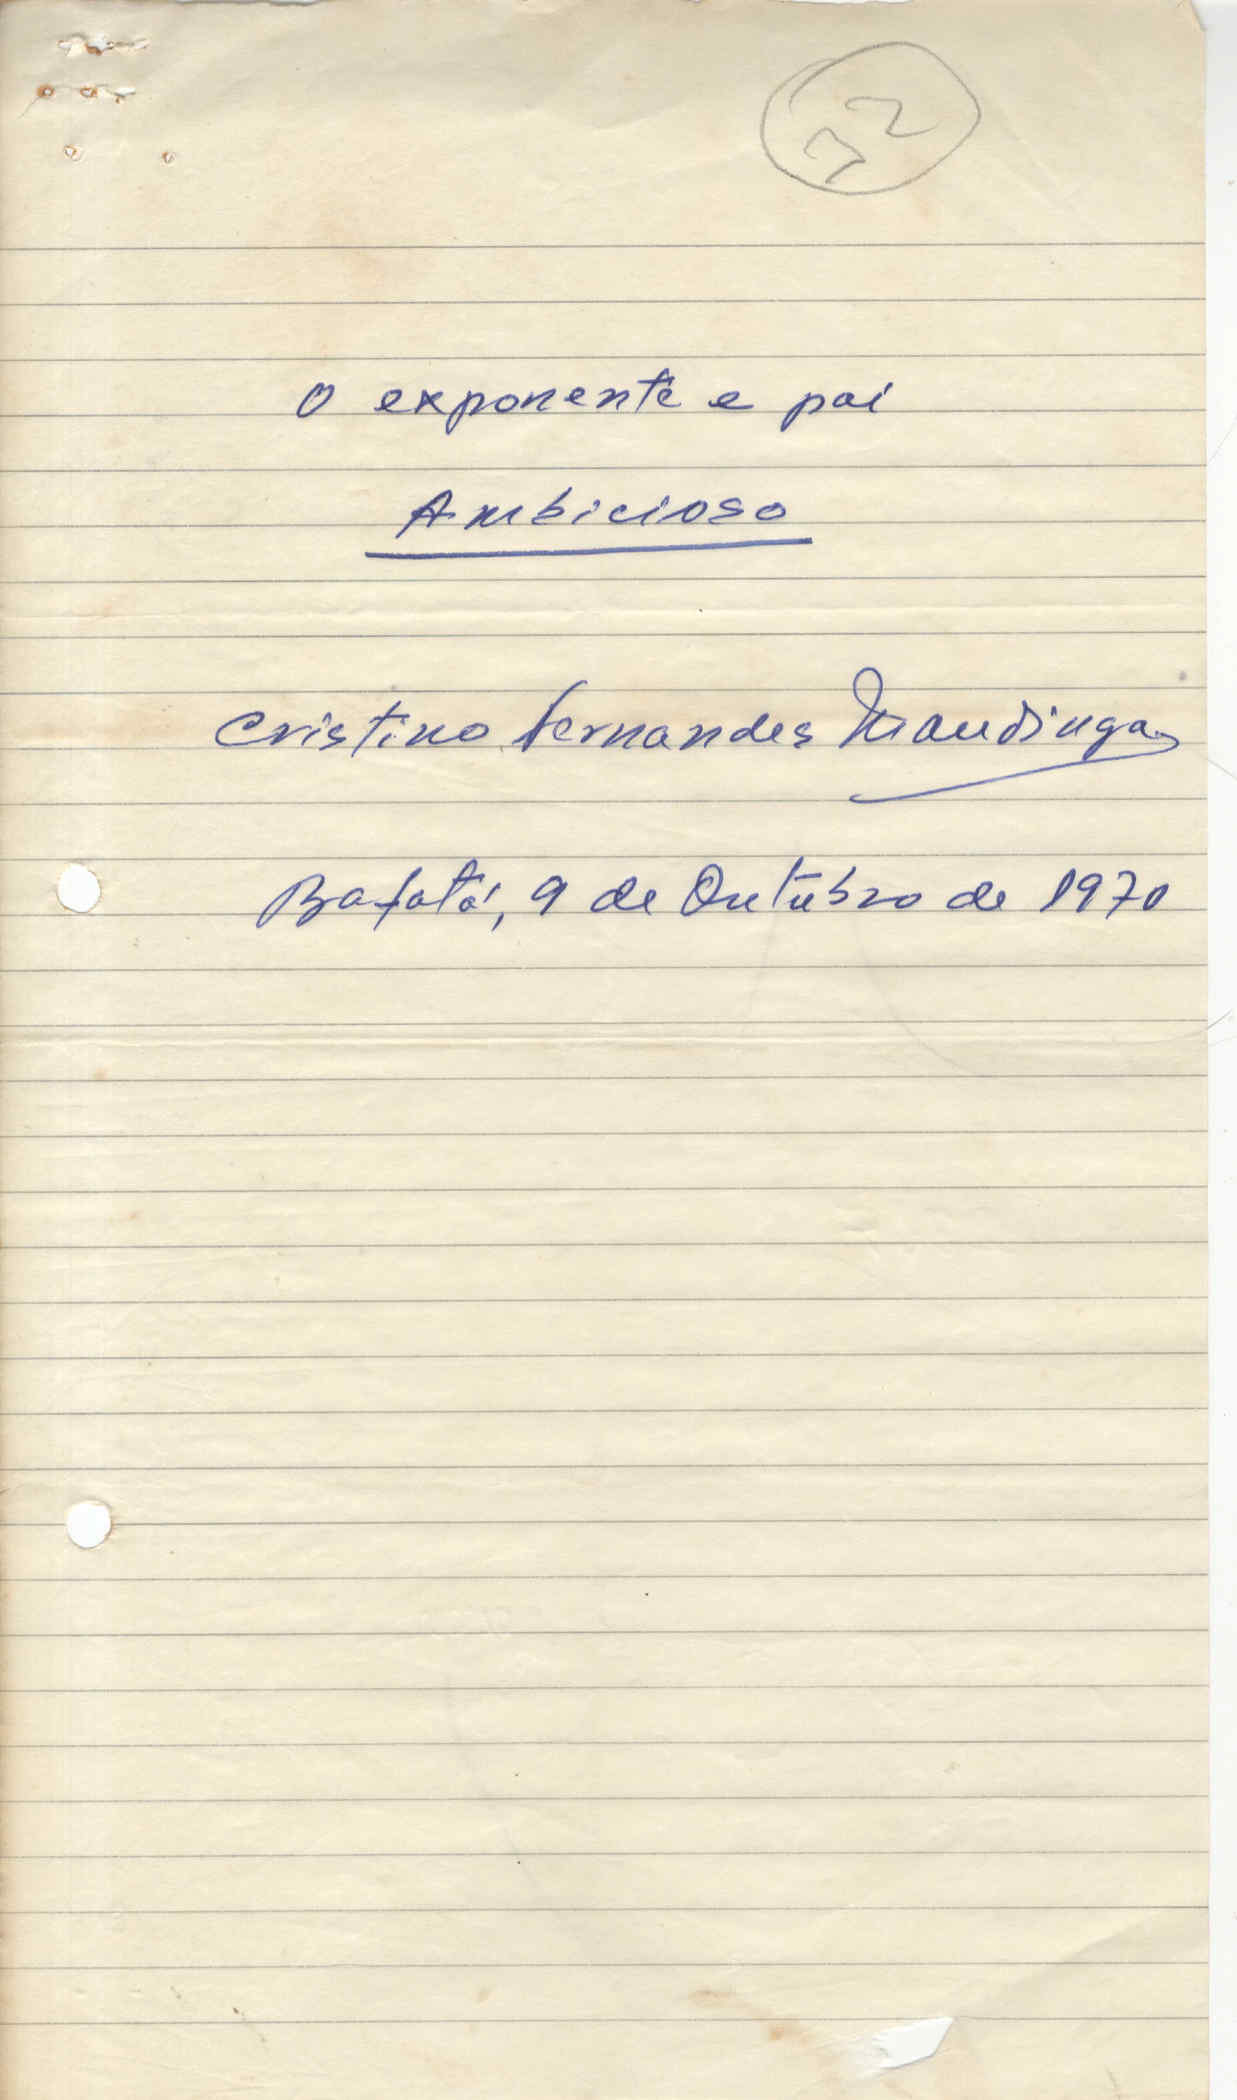 72
O exponente e pai
Ambicioso
Cristino Fernandes Mandinga
Bafatá, 9 de Outubro de 1970